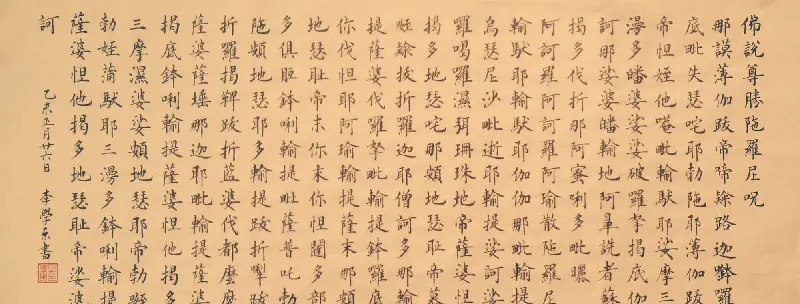 佛說尊勝陁羅尼呪
那謨薄伽跋帝啼隸路迦鉢羅
底毗失瑟咤耶勃陁耶薄伽跋
帝怛姪他唵毗輸馱耶娑摩三
漫多皤婆娑娑破羅拏揭底伽
訶那娑婆皤輸地阿鼻詵者蘇
揭多伐折那阿蜜唎多毗曬
阿訶羅阿訶羅阿瑜散陁羅尼
輸馱耶輸馱耶伽伽那毗輸提
烏瑟尼沙毗逝耶輸提娑訶
羅喝羅濕弭珊珠地帝薩婆怛
揭多地瑟咤那頞地瑟耻帝慕
姪隸拔折羅迦耶僧訶多那輸
提薩婆伐羅拏毗輸提鉢羅
你伐怛耶阿瑜輸提薩末那頞
地瑟耻帝末你末你怛闥多部
多俱胝鉢唎輸提毗薩普吒勃
陁頞地瑟耶多輸提跋折犁跋
折羅揭鞞跋折藍婆代都麼麼
薩婆薩埵那迦耶毗輸提薩婆
揭底鉢唎輸提薩婆怛他揭多
三摩濕婆娑頞地瑟耶帝勃
勃姪蒱馱耶三漫多鉢唎輸提
薩婆怛他揭多地瑟耻帝娑婆
訶
乙未五月廿六日 李學東書